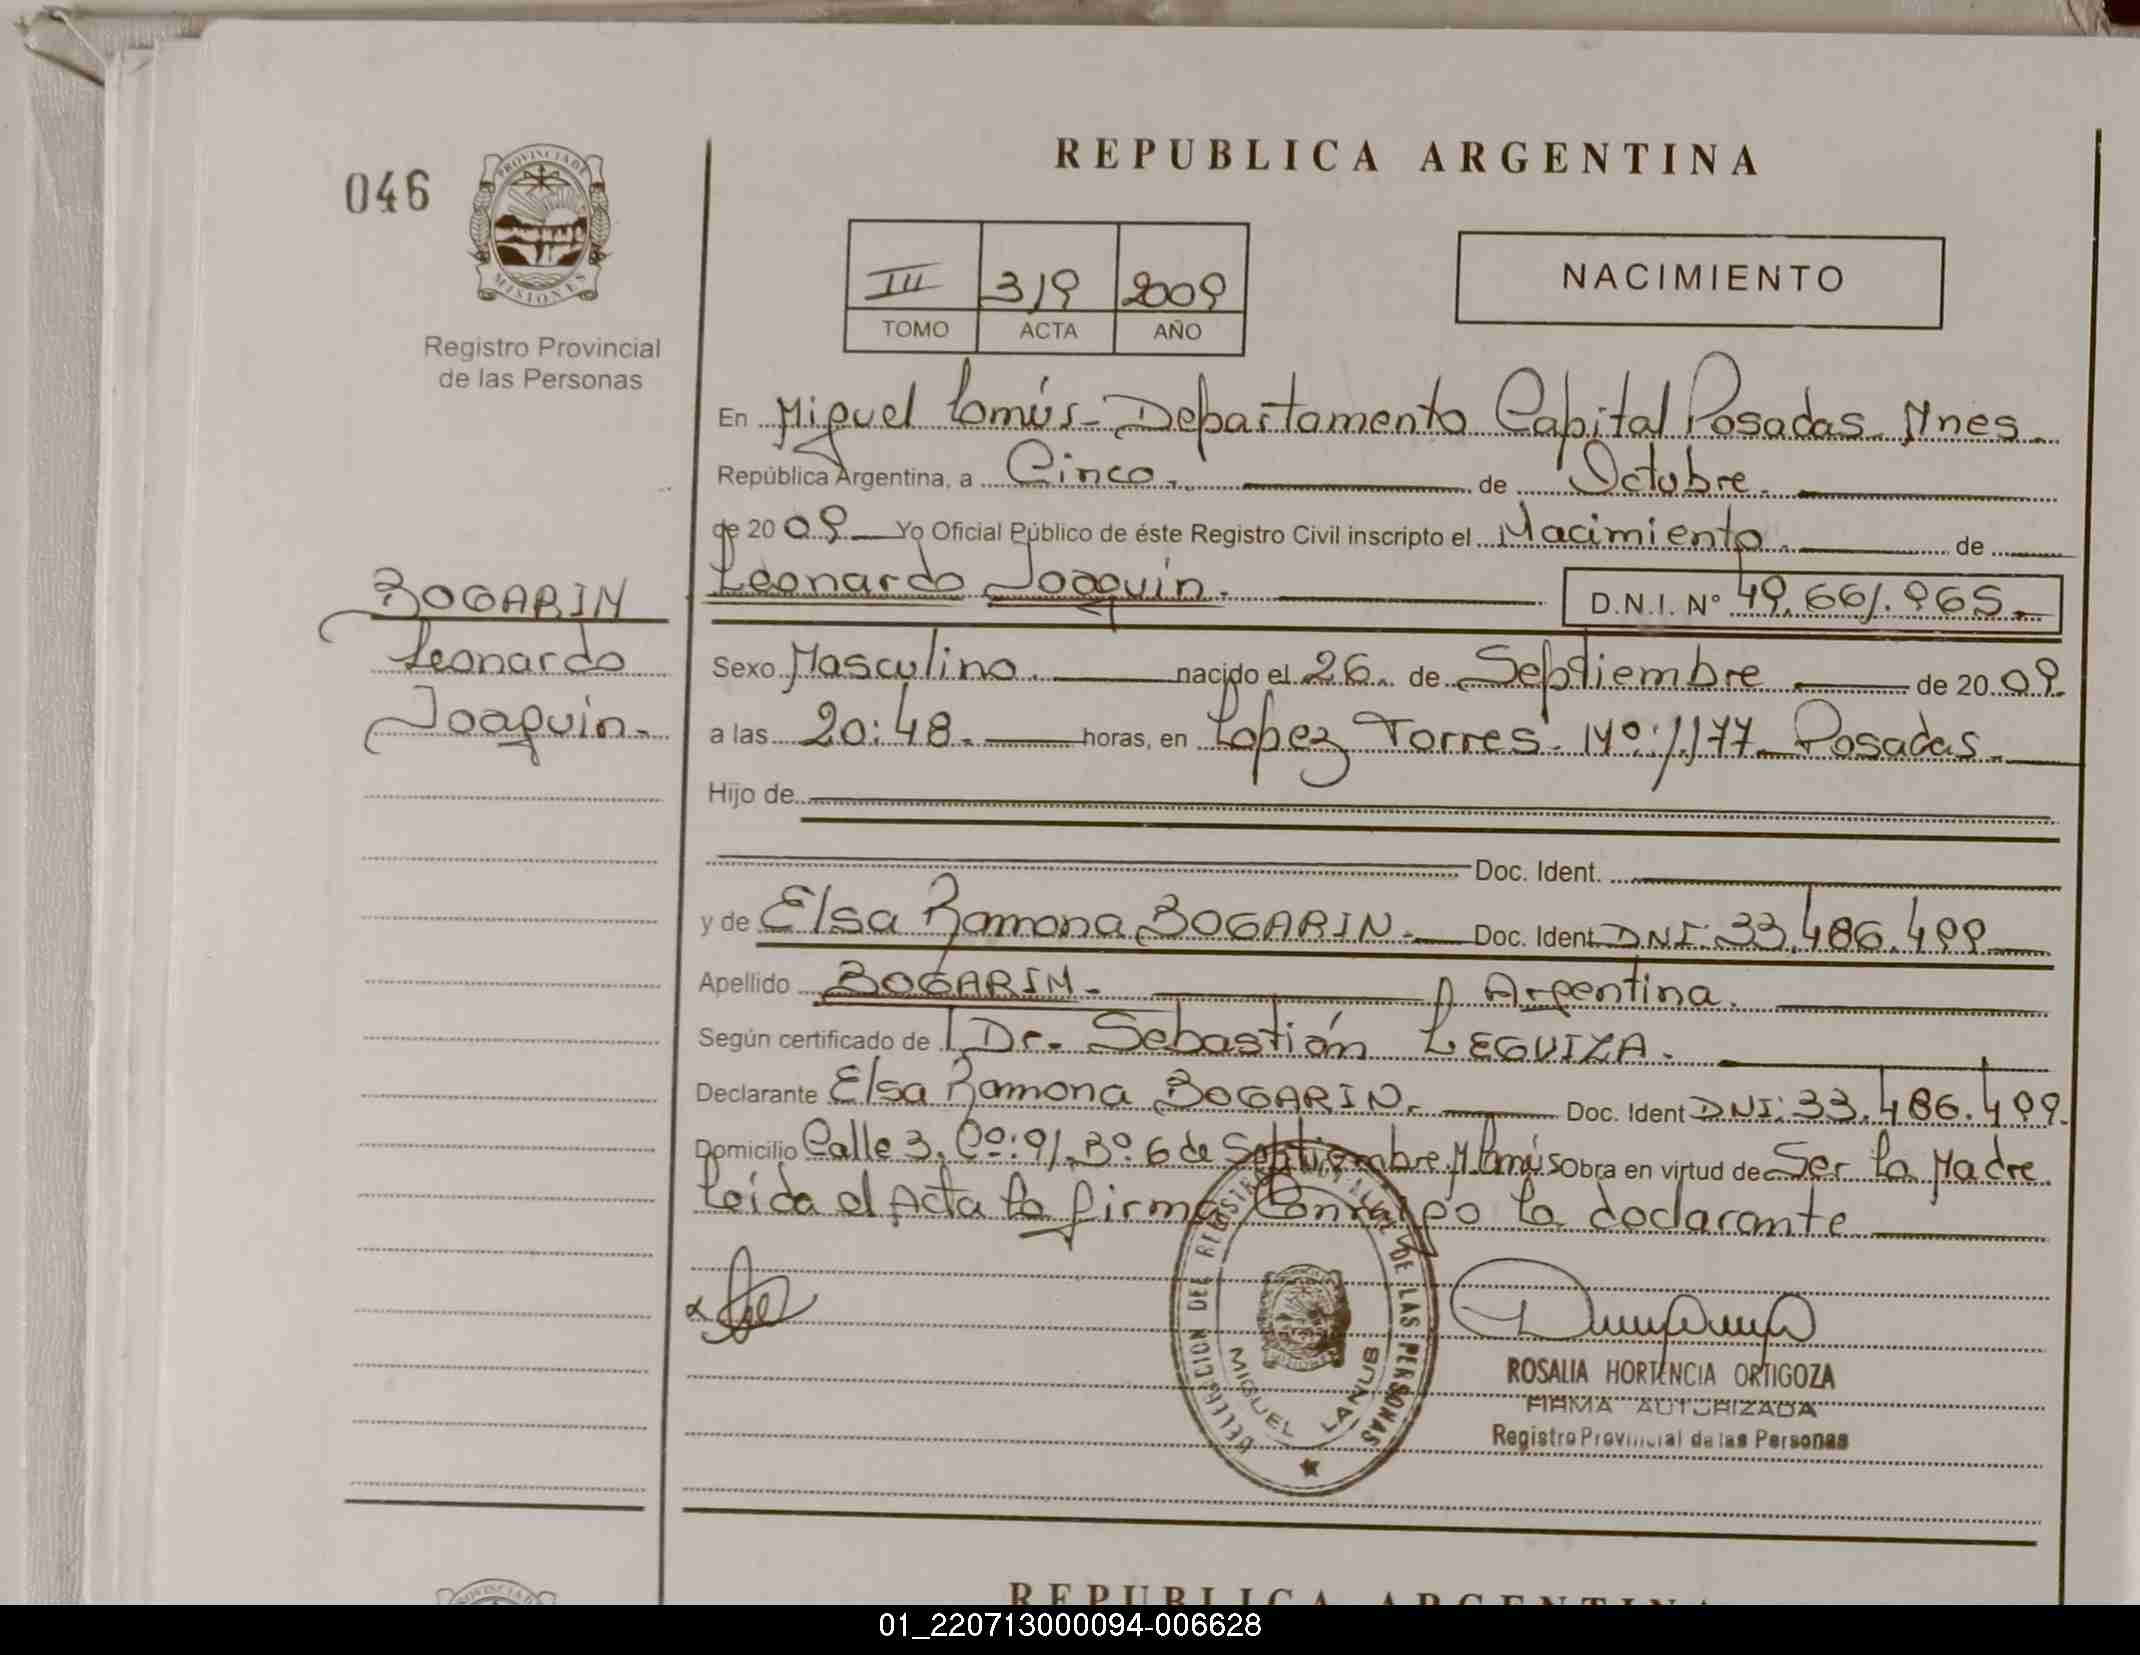 REPUBLICA ARGENTINA
046
PROVINCIA DE
MISIONES
Registro Provincial
de las Personas
III 319 2009
TOMO ACTA AÑO
NACIMIENTO
En Miguel Lanús - Departamento Capital Posadas Mnes.
República Argentina, a Cinco. de Octubre.
de 2009 Yo Oficial Público de éste Registro Civil inscripto el Nacimiento. de
Leonardo Joaquín. D.N.I. Nº 49.661.965.
BOGARIN
Leonardo
Joaquín.
Sexo Masculino. nacido el 26 de Septiembre de 2009.
a las 20:48. horas, en Lopez Torres Nº: 1177 Posadas.
Hijo de
Doc. Ident.
y de Elsa Ramona BOGARIN. Doc. Ident. DNI: 33.486.499
Apellido BOGARIN. Argentina.
Según certificado de Dr. Sebastián LEGUIZA.
Declarante Elsa Ramona BOGARIN. Doc. Ident DNI: 33.486.499.
Domicilio Calle 3. Cº: 91. Bº 6 de Septiembre M. Lanús Obra en virtud de Ser la Madre
Leída el Acta la firma Conmigo la declarante
DELEGACION DE REGISTRO DE LAS PERSONAS
MIGUEL LANUS
ROSALIA HORTENCIA ORTIGOZA
FIRMA AUTORIZADA
Registro Provincial de las Personas
REPUBLICA ARGENTINA
01_220713000094-006628